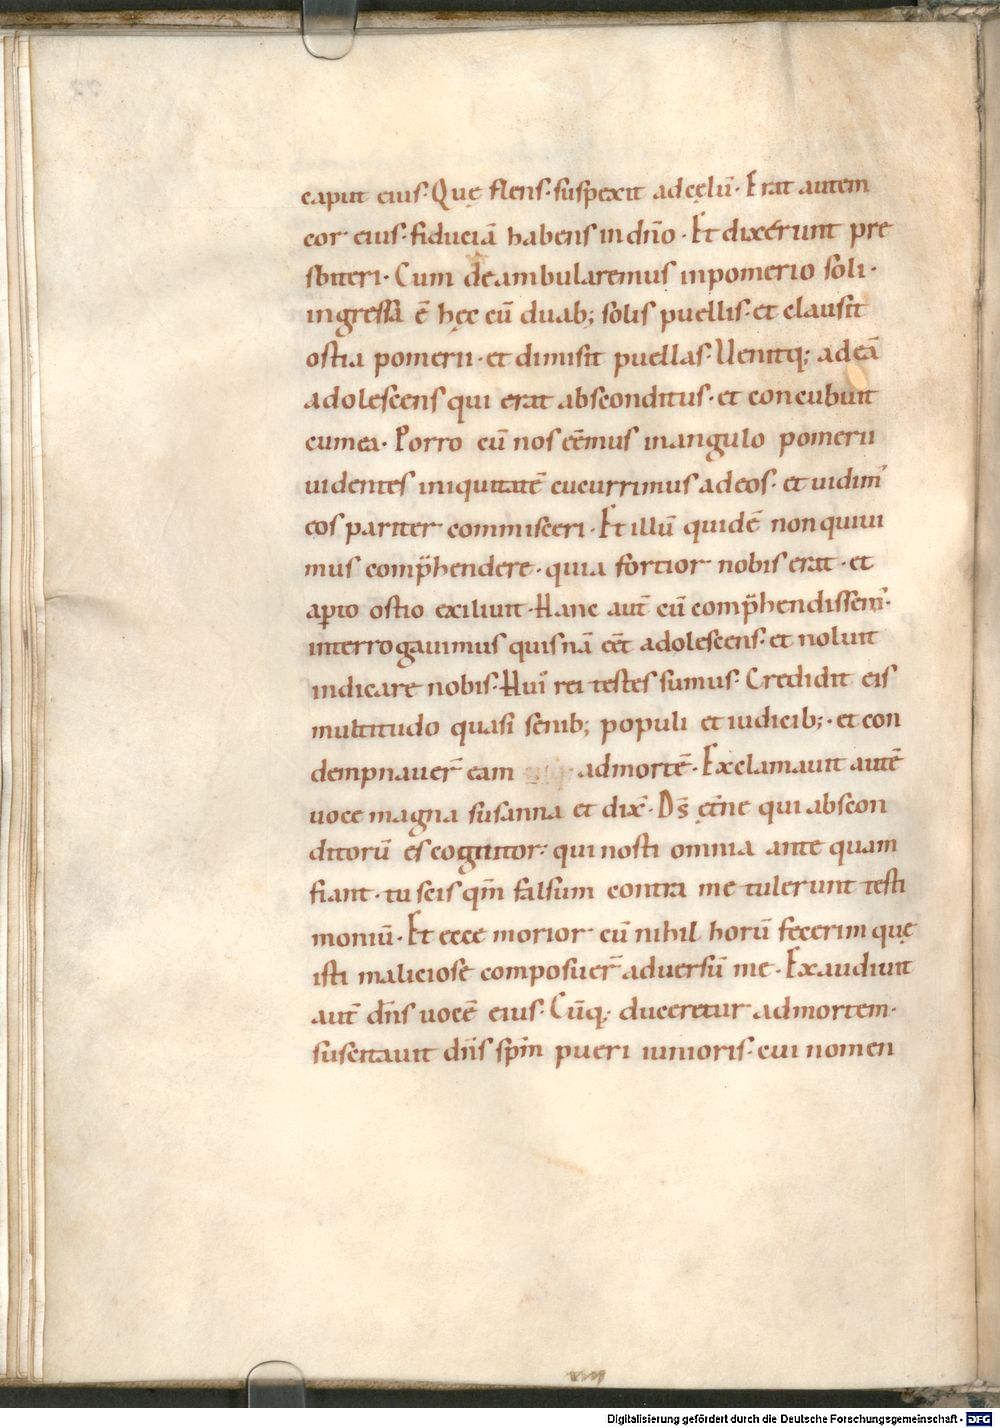 caput eius· Quę flens· suspexit ad cęlū· Erat autem
cor eius· fiduciā habens in dn̄o· Et dixerunt pre
sbiteri· Cum deambularemus in pomerio soli·
ingressa ē hęc cū duab; solis puellis· et clausit
ostia pomerii· et dimisit puellas· Uenitq; ad eā
adolescens qui erat absconditus· et concubuit
cum ea· Porro cū nos eēmus in angulo pomerii
uidentes iniquitatē cucurrimus ad eos· et uidim᾽
eos pariter commisceri· Et illū quidē non quiui
mus comp̄hendere· quia fortior nobis erat· et
aꝑto ostio exiliuit· Hanc aut̄ cū comp̄hendissem᾽·
interrogauimus quis nā eēt adolescens· et noluit
indicare nobis· Hui᾽ rei testes sumus· Credidit eis
multitudo quasi senib; populi et iudicib;· et con
dempnauer̄ eam ad mortē· Exclamauit autē
uoce magna susanna et dix̄· Ds̄ ęt̄ne qui abscon
ditorū es cognitor· qui nosti omnia ante quam
fiant· tu scis qm̄ falsum contra me tulerunt testi
moniū· Et ecce morior cū nihil horū fecerim quę
isti maliciose composuer̄ aduersū me· Exaudiuit
aut̄ dn̄s uocē eius· Cūq; duceretur ad mortem·
suscitauit dn̄s sp̄m pueri iunioris· cui nomen
Digitalisierung gefördert durch die Deutsche Forschungsgemeinschaft - DFG